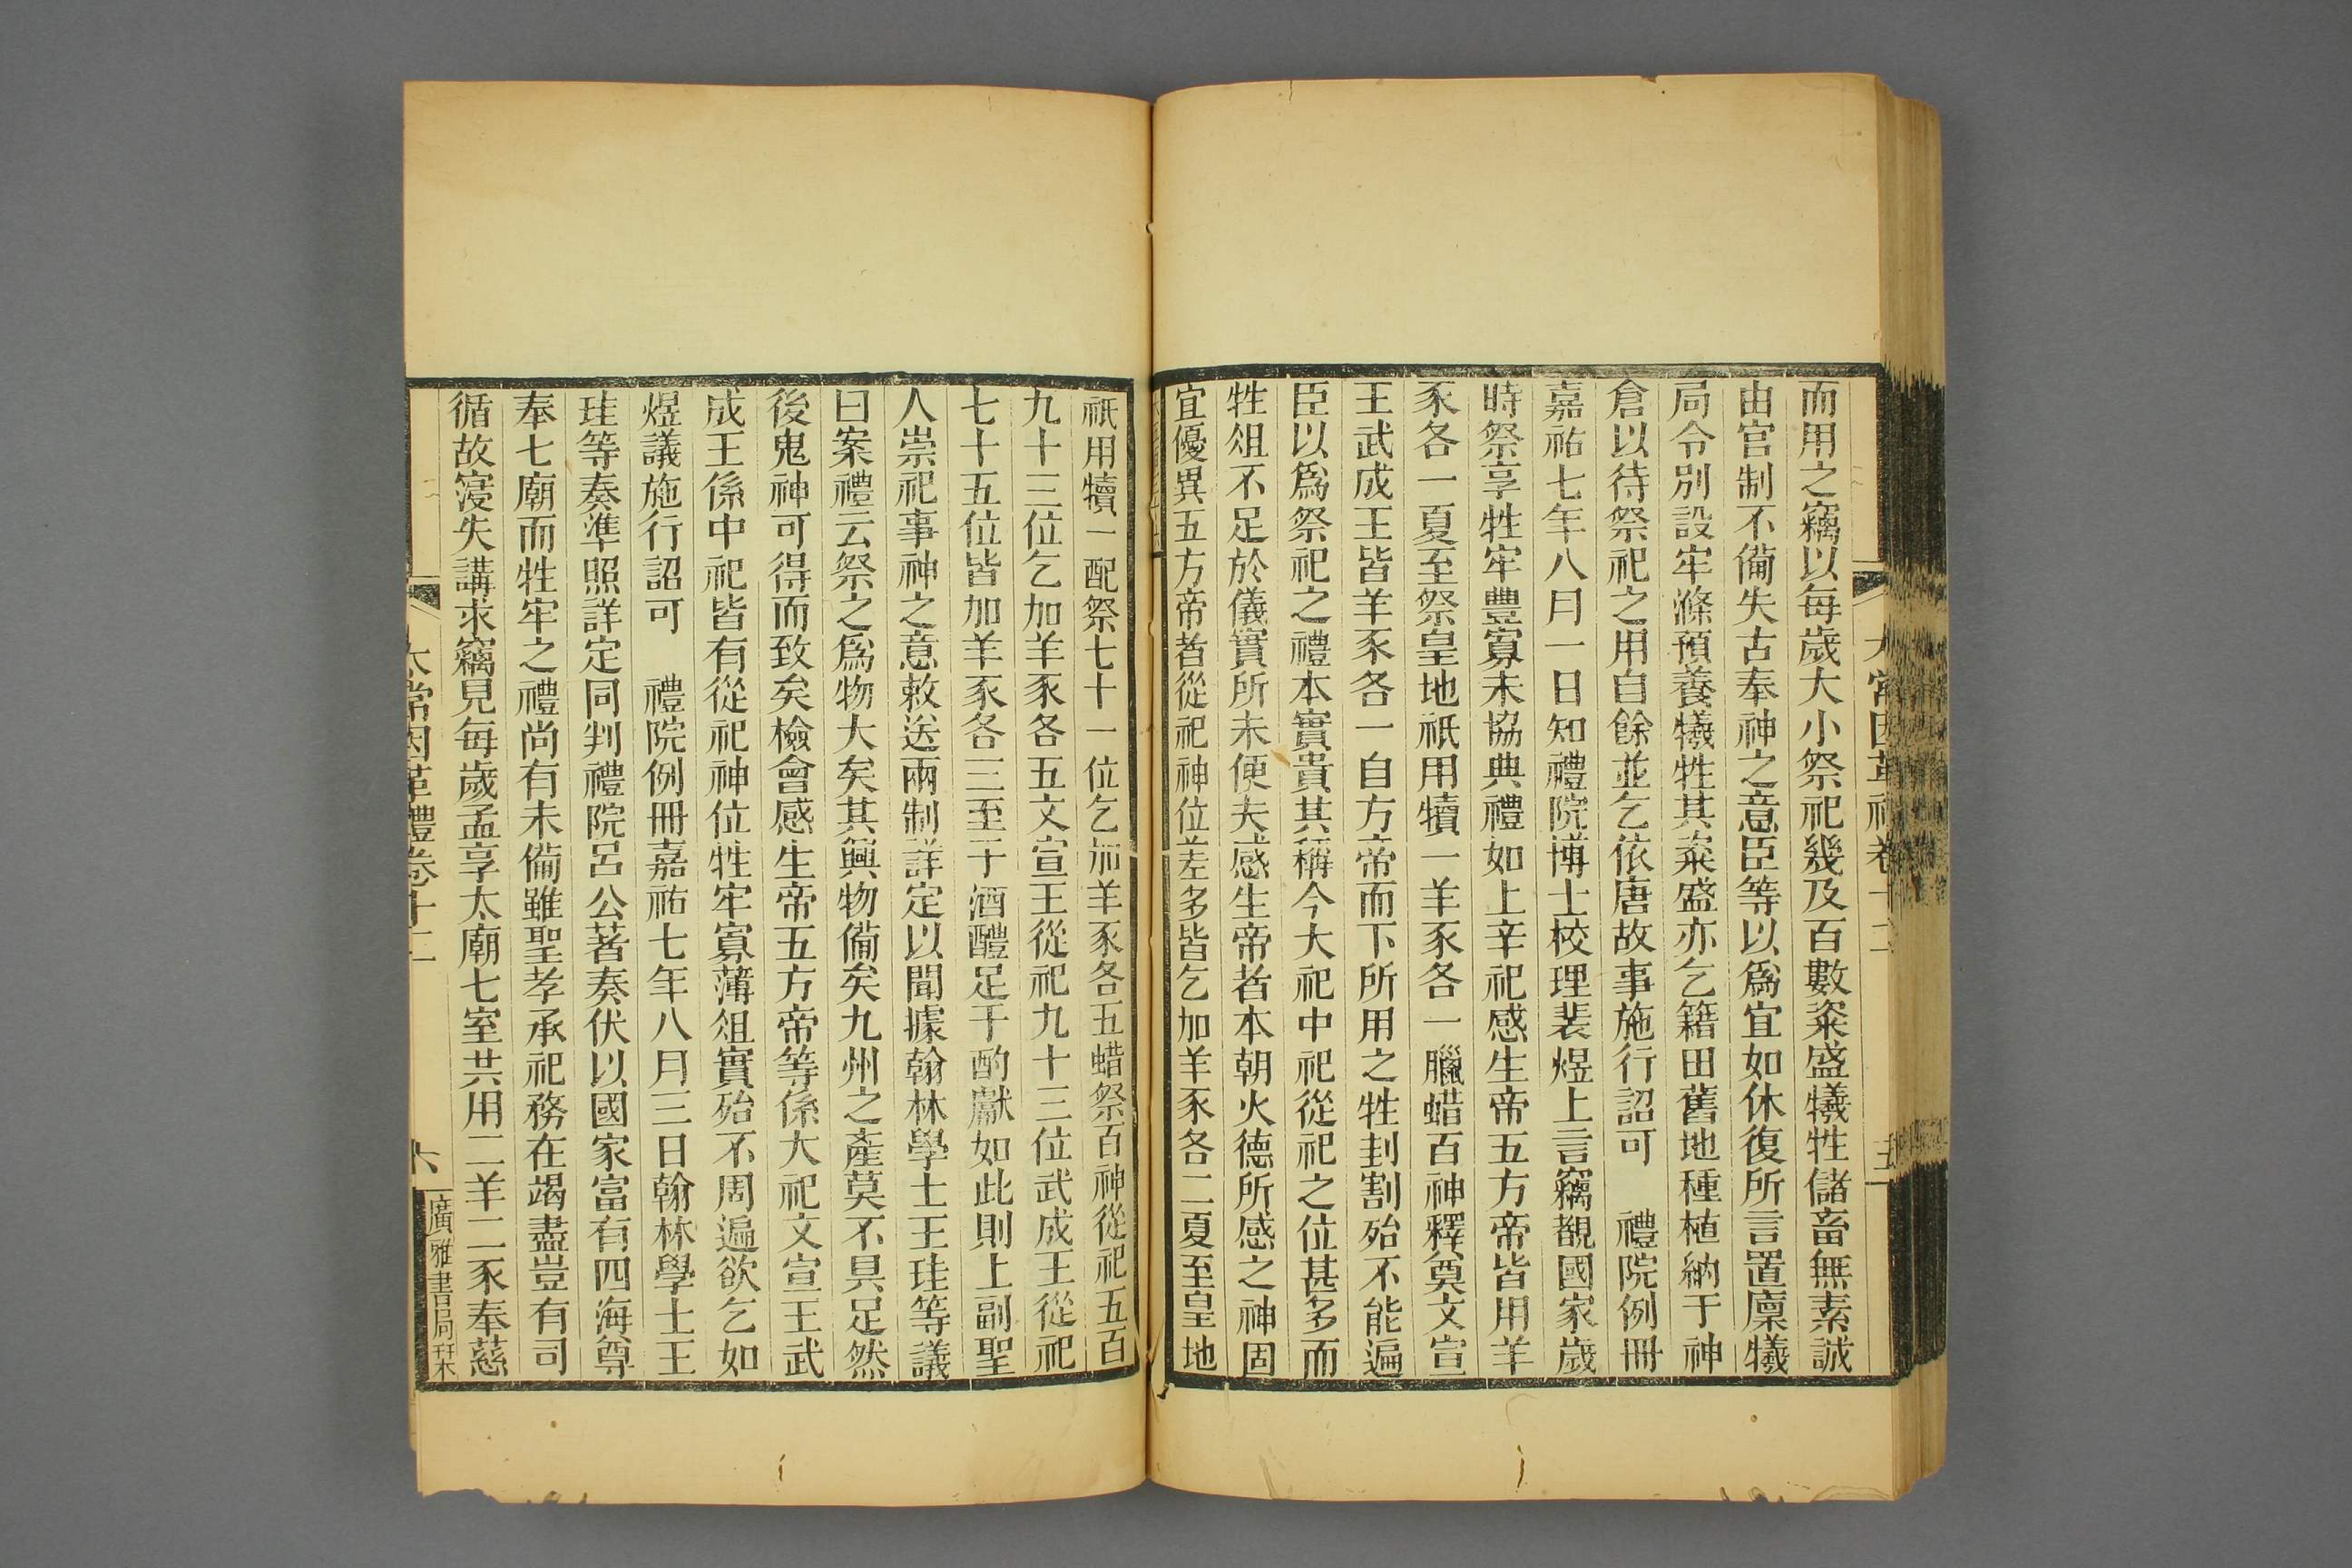 而用之竊以每歲大小祭祀幾及百數粢盛犧牲儲畜無素誠
由官制不備失古奉神之意臣等以爲宜如休復所言置廩犧
局令別設牢滌預養犧牲其粢盛亦乞籍田舊地種植納于神
倉以待祭祀之用自餘並乞依唐故事施行詔可　禮院例冊
嘉祐七年八月一日知禮院博士校理裴煜上言竊覩國家歲
時祭享牲牢豐寡未協典禮如上辛祀感生帝五方帝皆用羊
豕各一夏至祭皇地祇用犢一羊豕各一臘蜡百神釋奠文宣
王武成王皆羊豕各一自方帝而下所用之牲刲割殆不能遍
臣以爲祭祀之禮本實貴其稱今大祀中祀從祀之位甚多而
牲俎不足於儀實所未便夫感生帝者本朝火德所感之神固
宜優異五方帝者從祀神位差多皆乞加羊豕各二夏至皇地
祇用犢一配祭七十一位乞加羊豕各五蜡祭百神從祀五百
九十三位乞加羊豕各五文宣王從祀九十三位武成王從祀
七十五位皆加羊豕各三至于酒醴足于酌獻如此則上副聖
人崇祀事神之意敕送兩制詳定以聞據翰林學士王珪等議
曰案禮云祭之爲物大矣其興物備矣九州之產莫不具足然
後鬼神可得而致矣檢會感生帝五方帝等係大祀文宣王武
成王係中祀皆有從祀神位牲牢寡薄俎實殆不周遍欲乞如
煜議施行詔可　禮院例冊嘉祐七年八月三日翰林學士王
珪等奏準照詳定同判禮院呂公著奏伏以國家富有四海尊
奉七廟而牲牢之禮尚有未備雖聖孝承祀務在竭盡豈有司
循故寖失講求竊見每歲孟享太廟七室共用二羊二豕奉慈
太常因革禮卷十二
六
廣雅書局栞